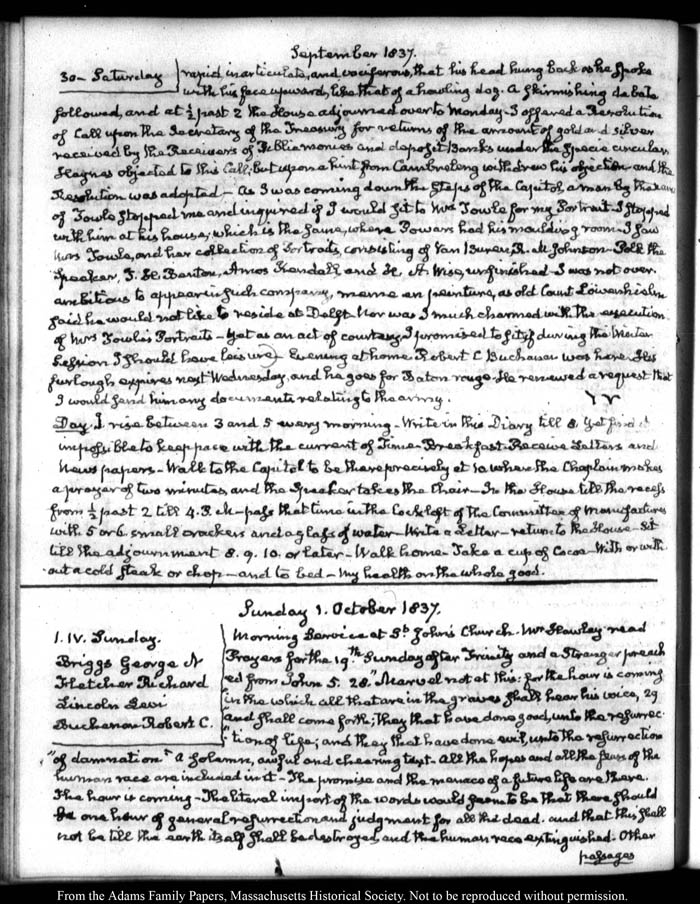 September 1837.
30– Saturday rapid inarticulate, and vociferous, that his head hung back as he spoke
with his face upward, like that of a howling dog. A skirmishing debate
followed, and at ½ past 2 the House adjourned over to Monday– I offered a Resolution
of Call upon the Secretary of the Treasury for returns of the amount of gold and silver
received by the Receivers of Public monies and deposit Banks under the Specie circular
Haynes objected to this Call; but upon a hint from Cambreleng withdrew his objection and the
Resolution was adopted– As I was coming down the steps of the Capitol, a man by the name
of Towle stopped me and inquired if I would sit to Mrs Towle for my Portrait I stopped
with him at his house, which is the same, where Powers had his moulding room– I saw
Mrs Towle, and her collection of Portraits, consisting of Van Buren, R. M. Johnson– Polk the
Speaker, T. H. Benton, Amos Kendall, and H. A. Wise, unfinished– I was not over-
ambitious to appear in such company, meme en peinture, as old Count Lowenhielm
said he would not like to reside at Delft Nor was I much charmed with the execution
of Mrs Towle's Portraits– Yet as an act of courtesy I promised to sit if during the Winter
Session I should have leisure) Evening at home. Robert C. Buchanan was here. His
furlough expires next Wednesday, and he goes for Baton rouge. He renewed a request that
I would send him any documents relating to the army.
Day. I rise between 3 and 5 every morning– Write in this Diary till 8. Yet find it
impossible to keep pace with the current of Time– Breakfast– Receive Letters and
News papers– Walk to the Capitol to be there precisely at 10 where the Chaplain makes
a prayer of two minutes, and the Speaker takes the Chair– In the House till the recess
from ½ past 2 till 4. P.M– pass that time in the Cockloft of the Committee of Manufactures
with 5 or 6 small crackers and a glass of water– Write a Letter– return to the House– Sit
till the adjournment 8. 9. 10. or later– Walk home– Take a cup of Cocoa– With or with-
out a cold steak or chop– and to bed– My health on the whole good.
Sunday 1. October 1837.
1. IV. Sunday.
Briggs George N
Fletcher Richard
Lincoln Levi
Buchanan Robert C.
Morning Service at St. John's Church. Mr Hawley read
Prayers for the 19th Sunday after Trinity and a Stranger preach
ed from John 5. 28. "Marvel not at this: for the hour is coming
in the which all that are in the graves shall hear his voice, 29
and shall come forth; they that have done good, unto the resurrec-
tion of life; and they that have done evil, unto the resurrection
"of damnation" a solemn, awful and cheering text– All the hopes and all the fears of the
human race are included in it– The promise and the menace of a future life are there.
The hour is coming– The literal import of the words would seem to be that there should
be one hour of general resurrection and judgment for all the dead. and that this shall
not be till the earth itself shall be destroyed, and the human race extinguished. Other
passages
From the Adams Family Papers, Massachusetts Historical Society. Not to be reproduced without permission.